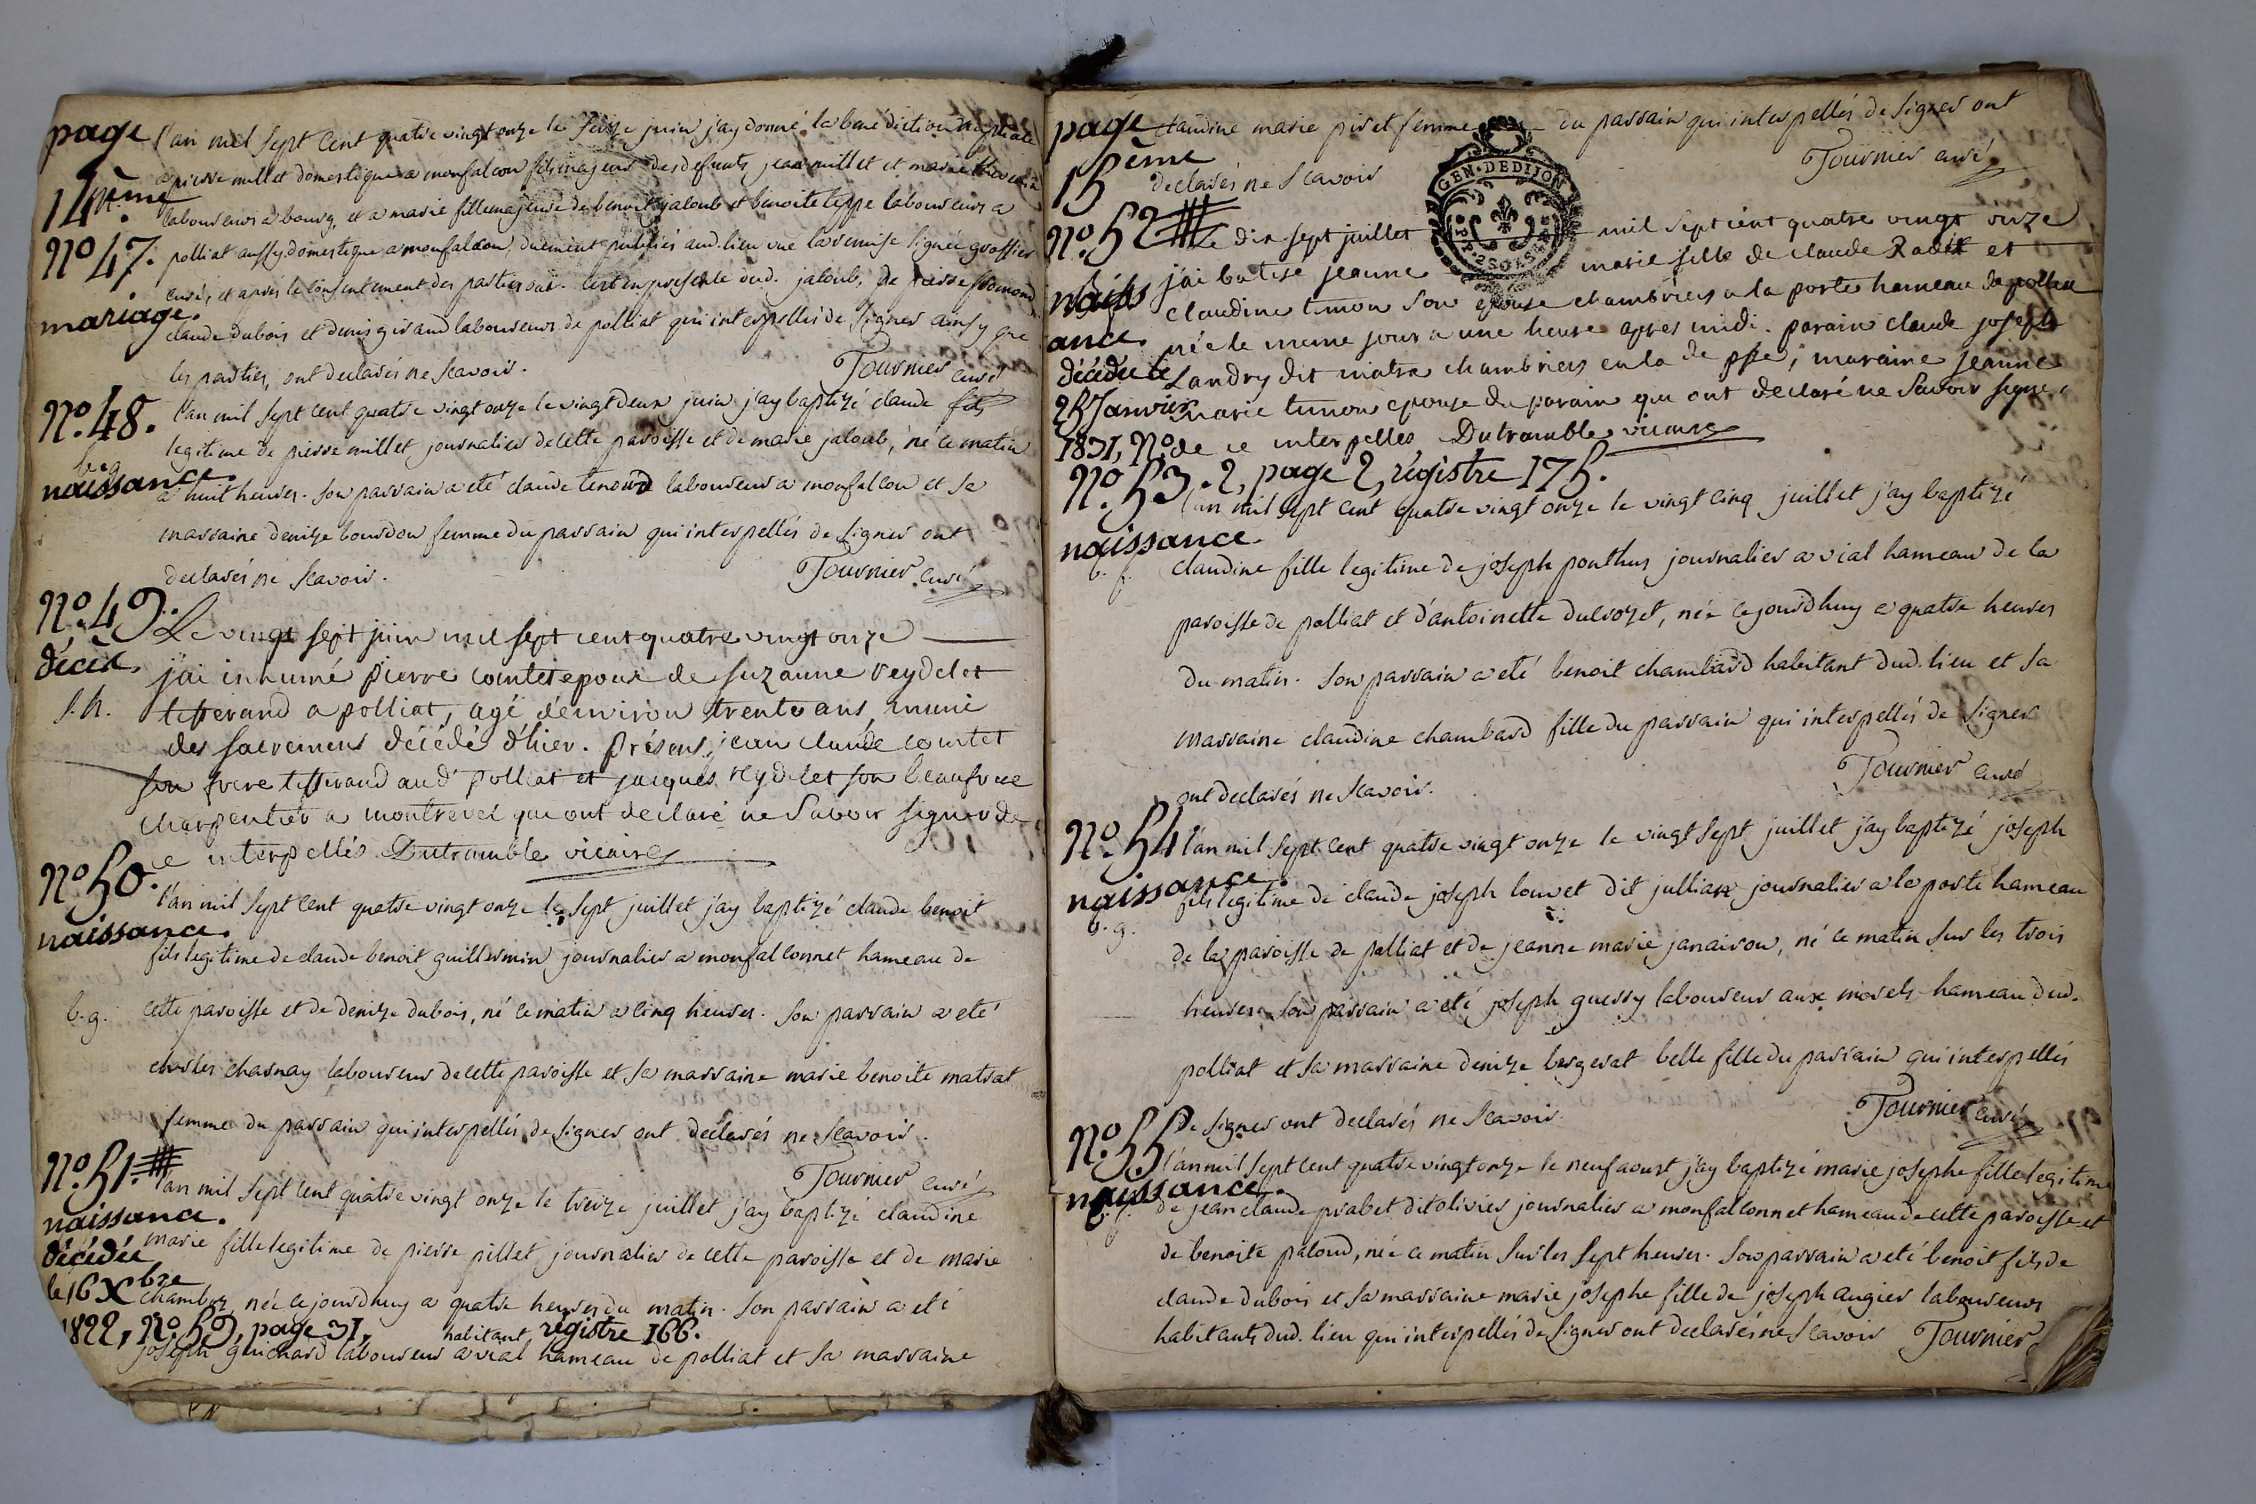 page
14ème
l'an mil sept cent quatre vingt onze le seize juin j'ay donné la benediction nuptiale
a pierre millet domestique a monfalcon fils majeur des defunts jean millet et marie
laboureurs a bourg, et a marie fille majeure de benoit jaloub et benoite teppe laboureurs a
No 47.
polliat aussy domestique a monfalcon, duement publiés aud. lieu vue la remise signée grossier
curé, et après le consentement des parties ouï. c'est en presence dud. jaloub, de pierre
mariage.
claude dubois et denis giraud laboureurs de polliat qui interpellés de signer ainsy que
les parties, ont declarés ne scavoir.
Tournier curé
No. 48.
l'an mil sept cent quatre vingt onze le vingt deux juin j'ay baptizé claude fils
legitime de pierre millet journalier de cette paroisse et de marie jaloub, né ce matin
b. g.
naissance.
a huit heures. son parrain a eté claude tenoud laboureur a monfalcon et sa
marraine denize bourdon femme du parrain qui interpellés de signer ont
declarés ne scavoir.
Tournier curé
No. 49.
Le vingt sept juin mil sept cent quatre vingt onze
décèd.
j'ai inhumé pierre comtet epoux de suzanne reydelet
s. h.
tisserand a polliat, agé d'environ trente ans, muni
des sacremens décédé d'hier. présens, jean claude comtet
son frere tisserand aud polliat et jacques reydelet son beaufrere
charpentier a montrevel qui ont declaré ne savoir signer de
ce interpellés Dutramble vicaire
No. 50.
l'an mil sept cent quatre vingt onze le sept juillet j'ay baptizé claude benoit
naissance.
fils legitime de claude benoit guillermin journalier a monfalconnet hameau de
b. g.
cette paroisse et de denize dubois, né ce matin a cinq heures. son parrain a eté
charles charnay laboureur de cette paroisse et sa marraine marie benoite matrat
femme du parrain qui interpellés de signer ont declarés ne scavoir.
Tournier curé
No. 51.
l'an mil sept cent quatre vingt onze le treize juillet j'ay baptizé claudine
naissance.
marie fille legitime de pierre pillet journalier de cette paroisse et de marie
décédée
le 16 Xbre
chambez, née ce jourdhuy a quatre heures du matin. son parrain a eté
1822, No. 59, page 31, registre 166.
habitant
joseph guichard laboureur a vial hameau de polliat et sa marraine
page
15ème
claudine marie piret femme du parrain qui interpellés de signer ont
declarés ne scavoir
Tournier curé
GEN. DE DIJON
2 SOLS
No. 52
Le dix sept juillet mil sept cent quatre vingt onze
naissance.
j'ai batisé jeanne marie fille de claude Radix et
claudine tinon son epouse chambriers a la porte hameau de polliat
née le meme jour a une heure apres midi. parain claude joseph
décédée le
Landry dit matra chambriers en la de psse, maraine jeanne
25 Janvier
marie tinon epouse du parain qui ont declaré ne savoir signer
1831, No.
de ce interpellés Dutramble vicaire
2, page 2, régistre 175.
No. 53.
l'an mil sept cent quatre vingt onze le vingt cinq juillet j'ay baptizé
naissance.
b. f.
claudine fille legitime de joseph ponthus journalier a vial hameau de la
paroisse de polliat et d'antoinette ducrozet, née ce jourdhuy a quatre heures
du matin. son parrain a eté benoit chambard habitant dud. lieu et sa
marraine claudine chambard fille du parrain qui interpellés de signer
ont declarés ne scavoir.
Tournier curé
No. 54
l'an mil sept cent quatre vingt onze le vingt sept juillet j'ay baptizé joseph
naissance.
b. g.
fils legitime de claude joseph louvet dit jullian journalier a la porte hameau
de la paroisse de polliat et de jeanne marie janairon, né ce matin sur les trois
heures. son parrain a eté joseph guerry laboureur aux morels hameau dud.
polliat et sa marraine denize bergerat belle fille du parrain qui interpellés
de signer ont declarés ne scavoir.
Tournier curé
No. 55
l'an mil sept cent quatre vingt onze le neuf aoust j'ay baptizé marie josephe fille legitime
naissance.
b. f.
de jean claude prabet dit olivier journalier a monfalconnet hameau de cette paroisse et
de benoite paloud, née ce matin sur les sept heures. son parrain a eté benoit fils de
claude dubois et sa marraine marie josephe fille de joseph augier laboureurs
habitants dud. lieu qui interpellés de signer ont declarés ne scavoir Tournier